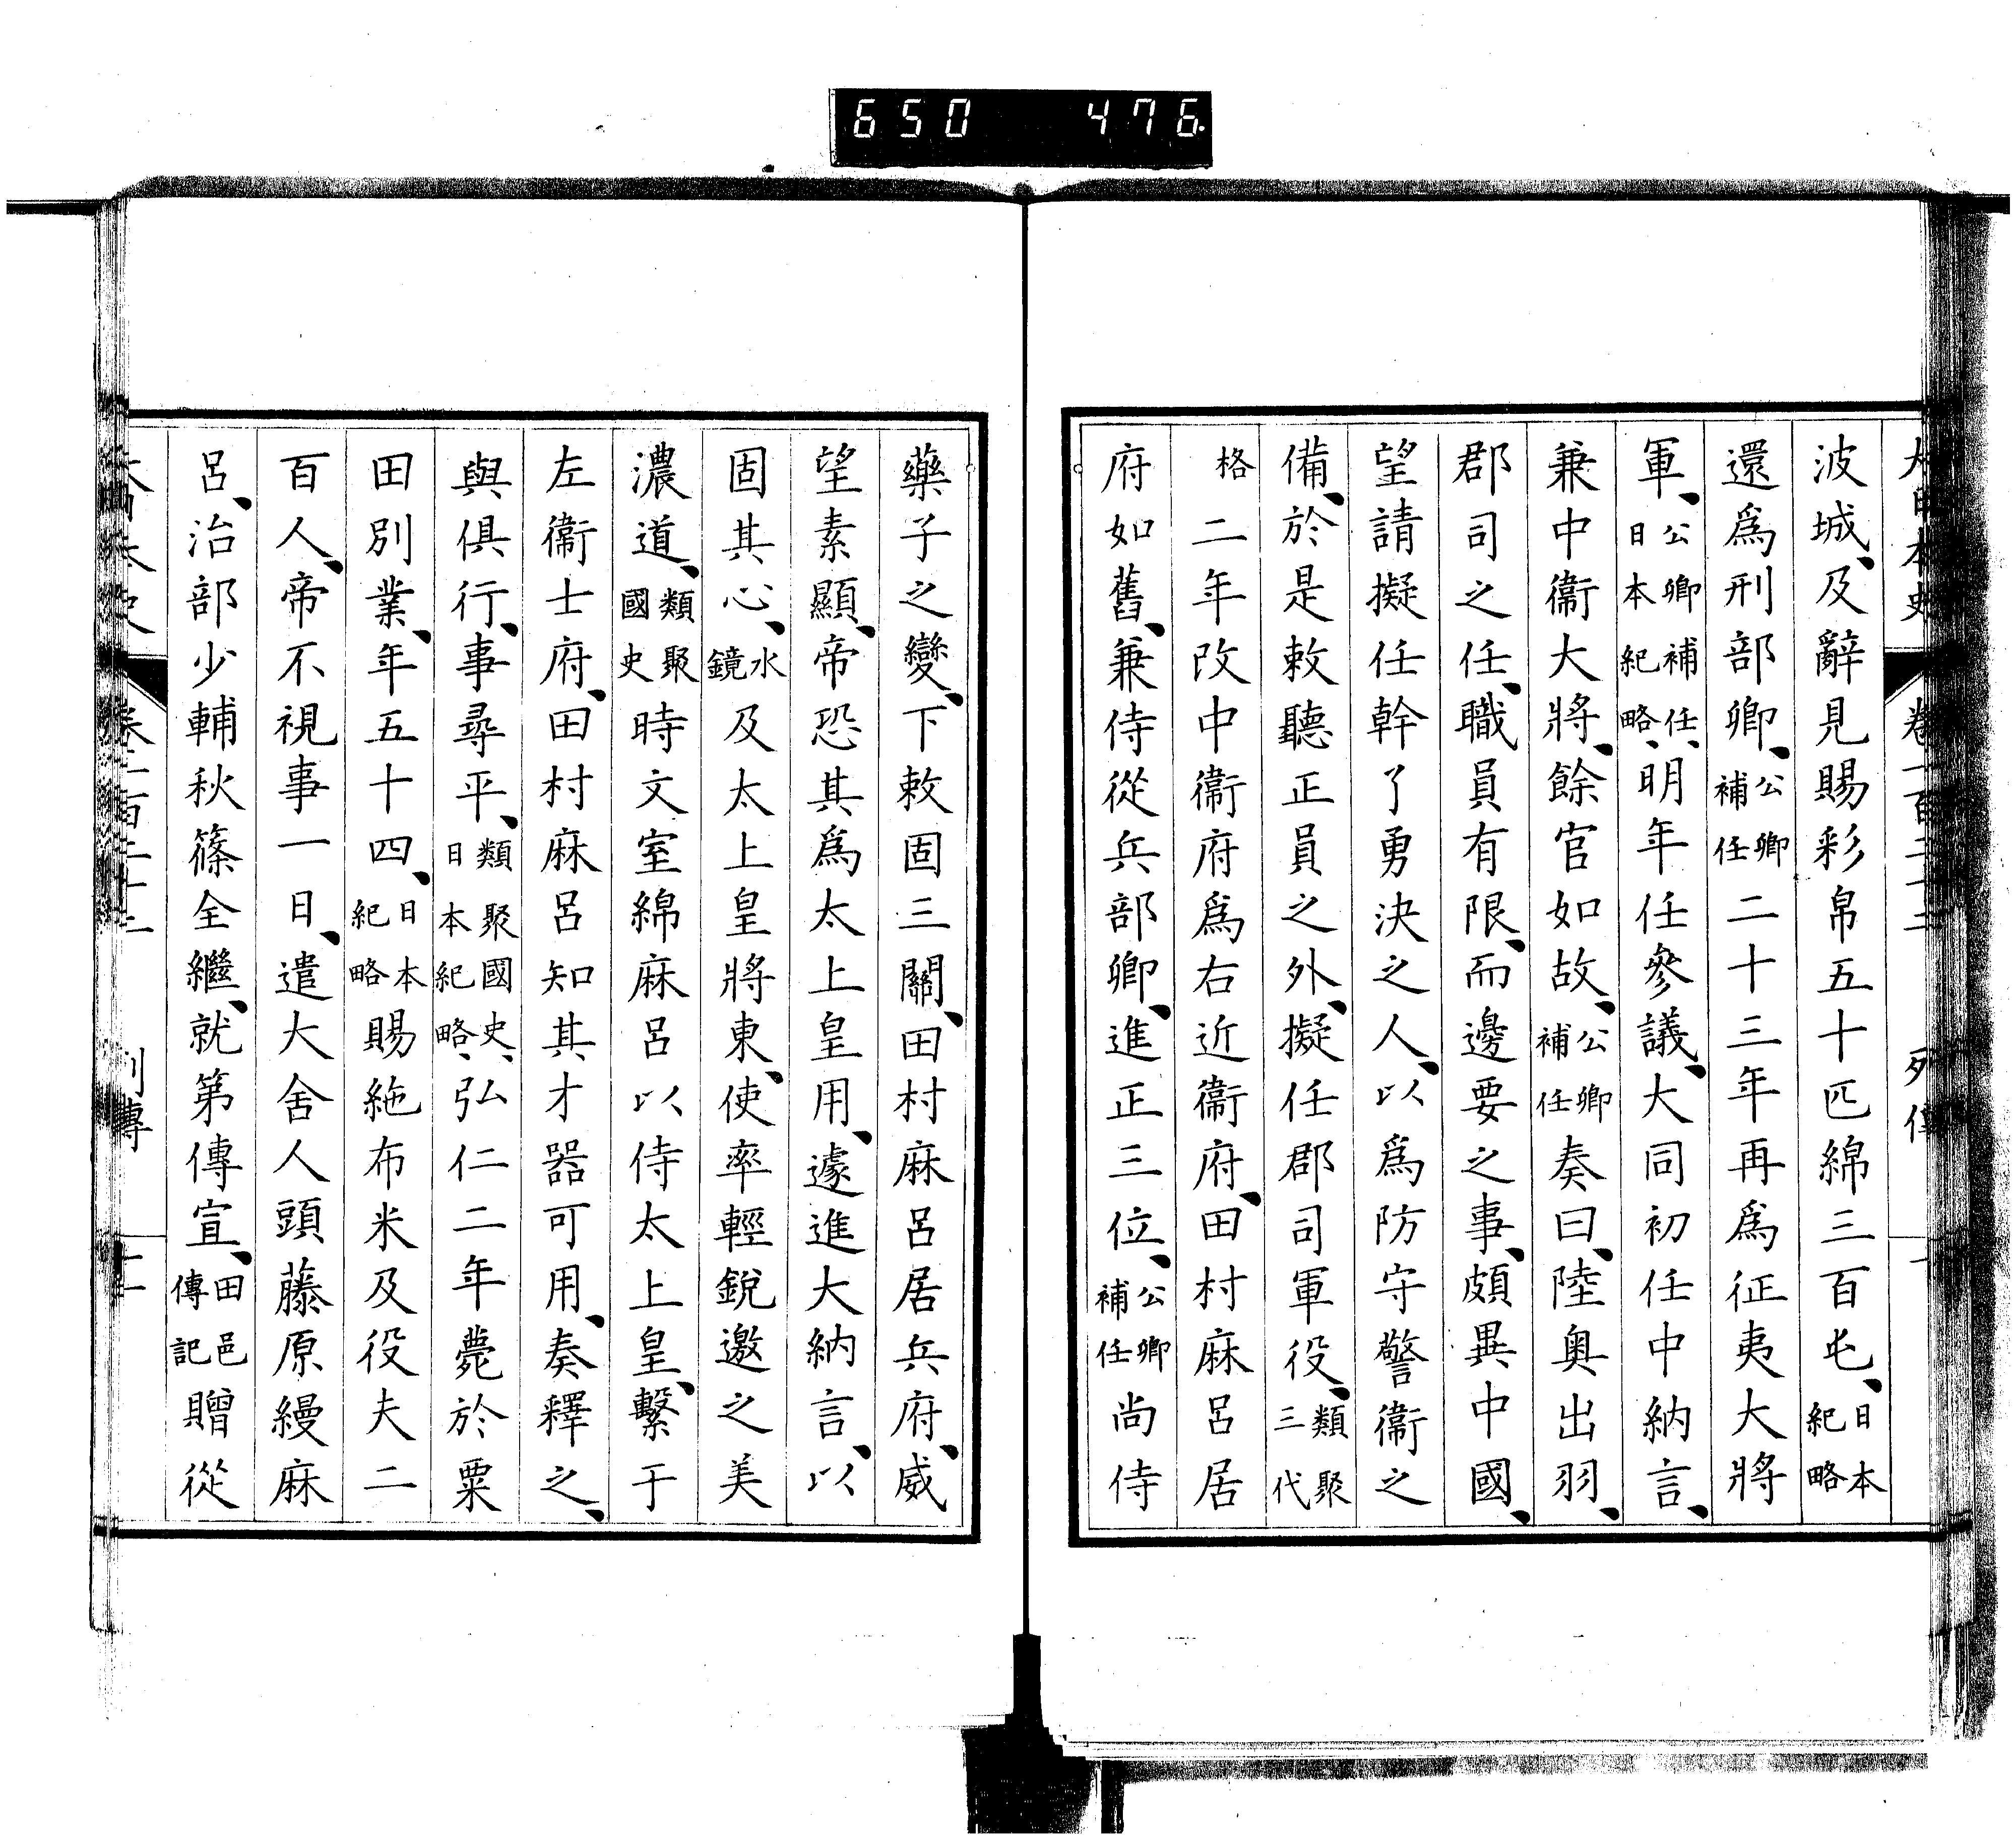 650 476
大日本史 卷一百二十二 列傳
波城、及辭見賜彩帛五十匹綿三百屯、日本紀略
還爲刑部卿、公卿補任二十三年再爲征夷大將
軍、公卿補任、日本紀略、明年任參議、大同初任中納言、
兼中衞大將、餘官如故、公卿補任奏曰、陸奧出羽、
郡司之任、職員有限、而邊要之事、頗異中國、
望請擬任幹了勇決之人、以爲防守警衞之
備、於是敕聽正員之外、擬任郡司軍役、類聚三代
格二年改中衞府爲右近衞府、田村麻呂居
府如舊、兼侍從兵部卿、進正三位、公卿補任尚侍
藥子之變、下敕固三關、田村麻呂居兵府、威
望素顯、帝恐其爲太上皇用、遽進大納言、以
固其心、水鏡及太上皇將東、使率輕銳邀之美
濃道、類聚國史時文室綿麻呂以侍太上皇、繫于
左衞士府、田村麻呂知其才器可用、奏釋之、
與俱行、事尋平、類聚國史、日本紀略、弘仁二年薨於粟
田別業、年五十四、日本紀略賜絁布米及役夫二
百人、帝不視事一日、遣大舍人頭藤原縵麻
呂、治部少輔秋篠全繼、就第傳宣、田邑傳記贈從